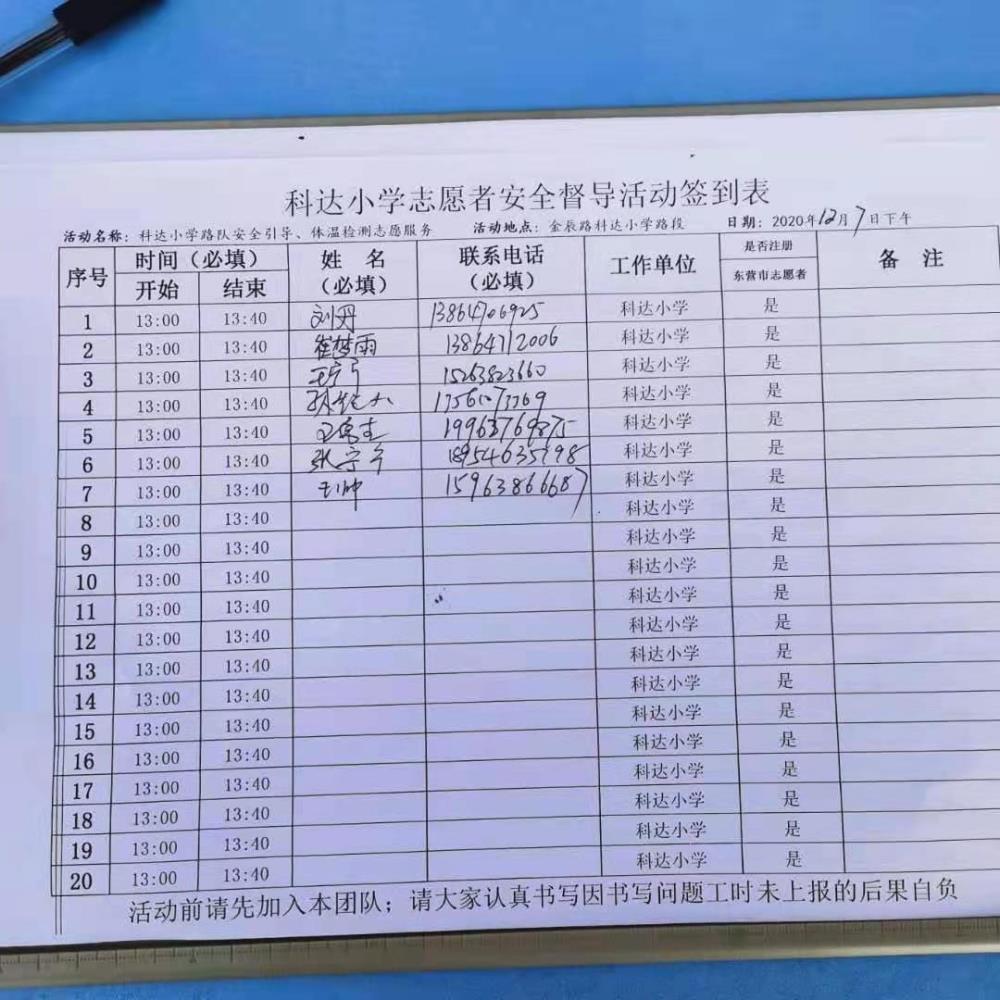 科达小学志愿者安全督导活动签到表
活动名称：科达小学路队安全引导、体温检测志愿服务 活动地点：金辰路科达小学路段 日期：2020年12月7日下午
序号 时间（必填） 姓名（必填） 联系电话（必填） 工作单位 是否注册东营市志愿者 备注
开始 结束
1 13:00 13:40 刘丹 13864706925 科达小学 是
2 13:00 13:40 崔梦雨 13864712006 科达小学 是
3 13:00 13:40 15263823660 科达小学 是
4 13:00 13:40 科达小学 是
5 13:00 13:40 19963769875 科达小学 是
6 13:00 13:40 张宁宁 科达小学 是
7 13:00 13:40 王帅 15963866687 科达小学 是
8 13:00 13:40 科达小学 是
9 13:00 13:40 科达小学 是
10 13:00 13:40 科达小学 是
11 13:00 13:40 科达小学 是
12 13:00 13:40 科达小学 是
13 13:00 13:40 科达小学 是
14 13:00 13:40 科达小学 是
15 13:00 13:40 科达小学 是
16 13:00 13:40 科达小学 是
17 13:00 13:40 科达小学 是
18 13:00 13:40 科达小学 是
19 13:00 13:40 科达小学 是
20 13:00 13:40 科达小学 是
活动前请先加入本团队；请大家认真书写因书写问题工时未上报的后果自负